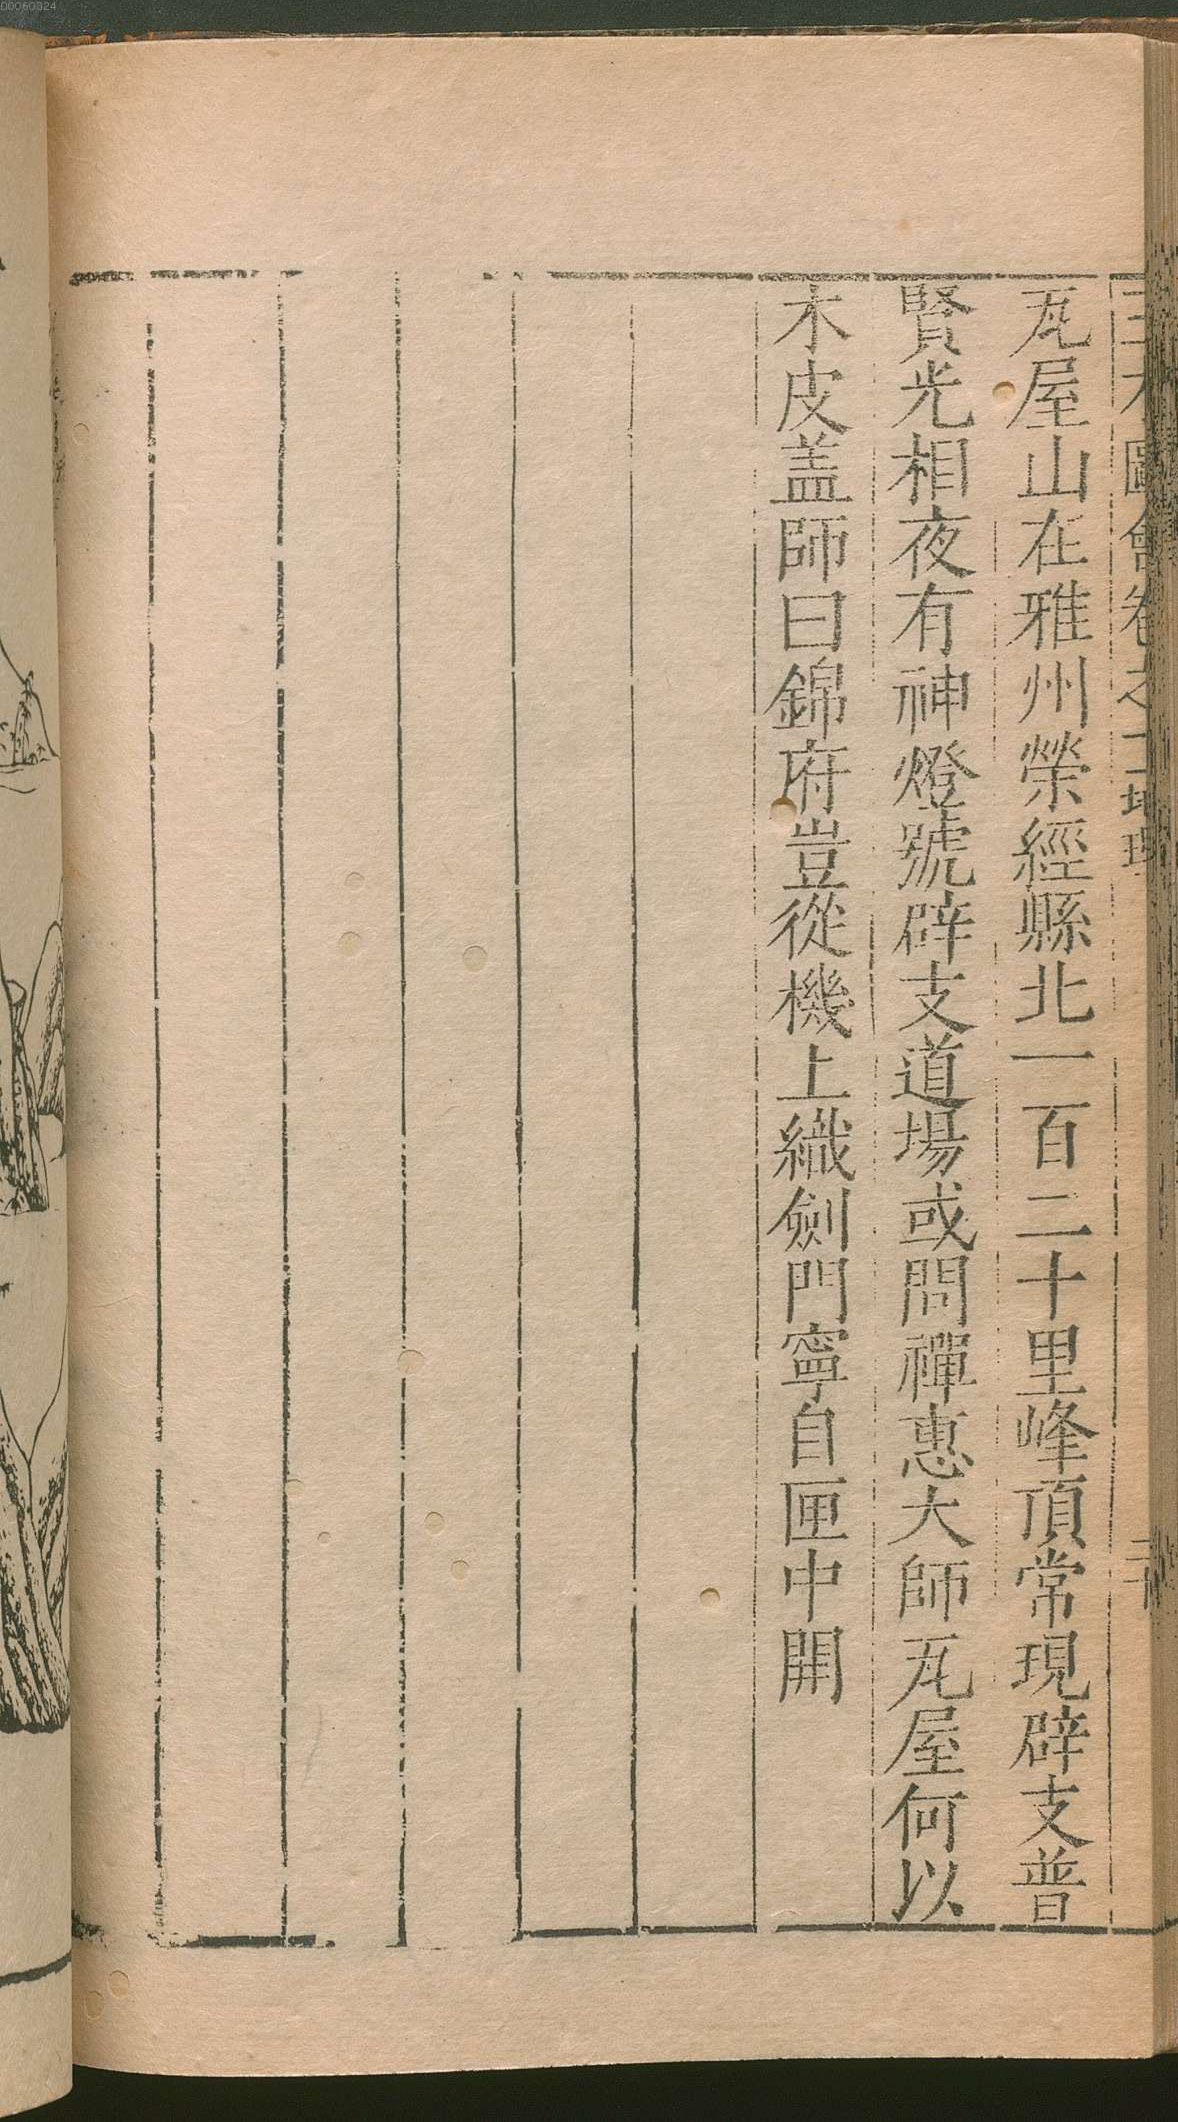 瓦屋山在雅州滎經縣北一百二十里峰頂常現辟支普
賢光相夜有神燈號辟支道場或問禪惠大師瓦屋何以
木皮盖師曰錦府豈從機上織劍門寧自匣中開
00060324